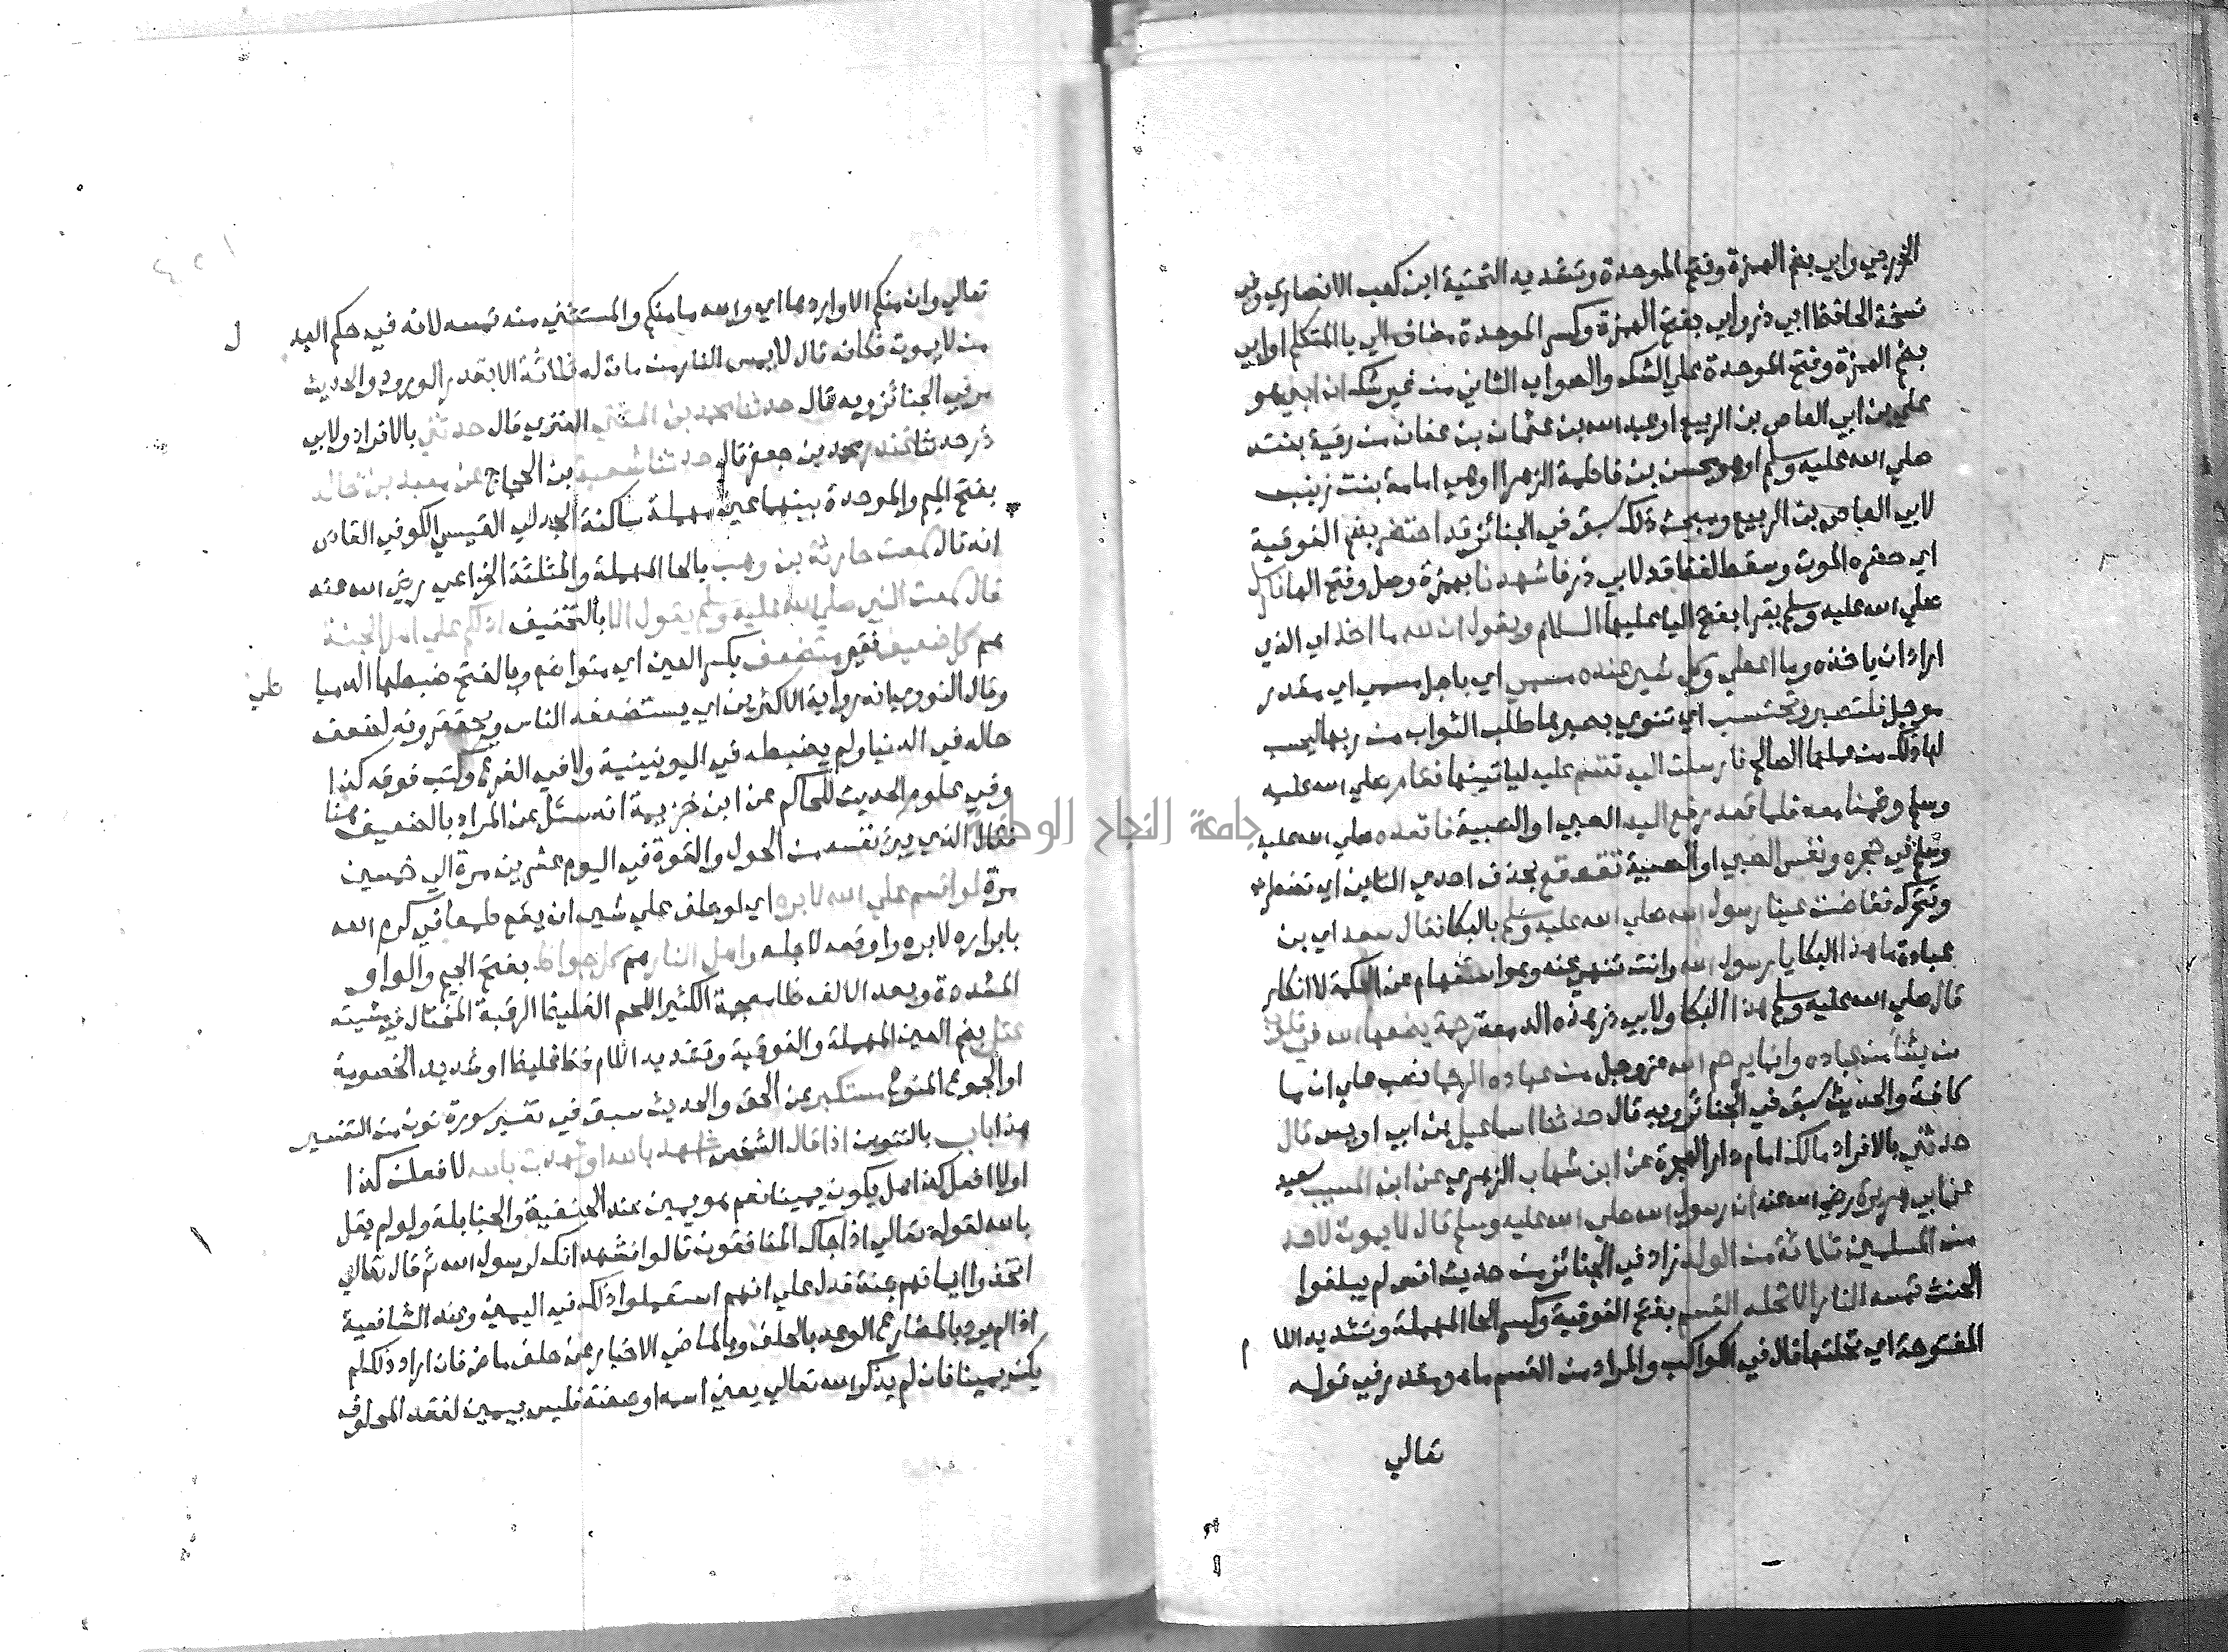 الخزرجي وابي بضم الهمزة وفتح الموحدة وتشديد التحتية ابن كعب الانصاري وفي
نسخة الحافظ ابي ذر وابي بفتح الهمزة وكسر الموحدة مضاف الي يا المتكلم او ابي
بضم الهمزة وفتح الموحدة علي الشك والصواب الثاني من غير شك ان ابني هو
علي بن ابي العاص بن الربيع او عبد الله بن عثمان بن عفان من رقية بنته
صلي الله عليه وسلم او هو محسن بن فاطمة الزهرا او هي امامة بنت زينب
لابي العاص بن الربيع وبحث ذلك سبق في الجنائز قد احتضر بضم الفوقية
اي حضره الموت وسقط لفظ قد لابي ذر فاشهدنا بهمزة وصل وفتح الها فارسل
صلي الله عليه وسلم يقرا بفتح اليا عليها السلام ويقول ان لله ما اخذ اي الذي
اراد ان ياخذه وما اعطي وكل شي عنده مسمي اي باجل مسمي اي مقدر
موجل فلتصبر وتحتسب اي تنوي بصبرها طلب الثواب من ربها ليحسب
لها ذلك من عملها الصالح فارسلت اليه تقسم عليه لياتينها فقام صلي الله عليه
وسلم وقمنا معه فلما قعد رفع اليه الصبي او الصبية فاقعده صلي الله عليه
وسلم في حجره ونفس الصبي او الصبية تقعقع بحذف احدي التاين اي تضطرب
وتتحرك ففاضت عينا رسول الله صلي الله عليه وسلم بالبكا فقال سعد اي بن
عبادة ما هذا البكا يا رسول الله وانت تنهي عنه وهو استفهام عن الحكمة لا انكار
قال صلي الله عليه وسلم هذا البكا ولابي ذر هذه الدمعة رحمة يضعها الله في قلوب
من يشا من عباده وانما يرحم الله عز وجل من عباده الرحما نصب علي ان ما
كافة والحديث سبق في الجنائز وبه قال حدثنا اسماعيل بن ابي اويس قال
حدثني بالافراد مالك امام دار الهجرة عن ابن شهاب الزهري عن ابن المسيب سعيد
عن ابي هريرة رضي الله عنه ان رسول الله صلي الله عليه وسلم قال لا يموت لاحد
من المسلمين ثلاثة من الولد زاد في الجنائز من حديث انس لم يبلغوا
الحنث تمسه النار الا تحلة القسم بفتح الفوقية وكسر الحا المهملة وتشديد اللا م
المفتوحة اي تحلتها قال في الكواكب والمراد من القسم ما هو مقدر في قوله
تعالي
تعالي وان منكم الا واردها اي والله ما منكم والمستثني منه تمسه لانه في حكم البد ل
من لا يموت فكانه قال لا يمس النار من مات له ثلاثة الا بقدر الورود والحديث
مر في الجنائز وبه قال حدثنا محمد بن المثني العنزي قال حدثني بالافراد ولابي
ذر حدثنا غندر محمد بن جعفر قال حدثنا شعبة بن الحجاج عن معبد بن خالد
بفتح الميم والموحدة بينهما عين مهملة ساكنة الجدلي القيسي الكوفي القاص
انه قال سمعت حارثة بن وهب بالحا المهملة والمثلثة الخزاعي رضي الله عنه
قال سمعت النبي صلي الله عليه وسلم يقول الا بالتخفيف ادلكم علي اهل الجنة
هم كل ضعيف فقير متضعف بكسر العين اي متواضع وبالفتح ضبطها الدميا طي
وقال النووي انه رواية الاكثرين اي يستضعفه الناس ويحتقرونه لضعف
حاله في الدنيا ولم يضبطه في اليونينية ولا في الفرع وكتب فوقه كذا
وفي علوم الحديث للحاكم عن ابن خزيمة انه سئل عن المراد بالضعيف هنا
فقال الذي يبرئ نفسه من الحول والقوة في اليوم عشرين مرة الي خمسين
مرة لو اقسم علي الله لابره اي لو حلف علي شي ان يقع طمعا في كرم الله
بابراره لابره واوقعه لاجله واهل النار هم كل جواظ بفتح الجيم والواو
المشددة وبعد الالف ظا معجمة الكثير اللحم الغليظ الرقبة المختال في مشيته
عتل بضم العين المهملة والفوقية وتشديد اللام فظ غليظ او شديد الخصومة
او الجموع المنوع مستكبر عن الحق والحديث سبق في تفسير سورة نون من التفسير
هذا باب بالتنوين اذا قال الشخص اشهد بالله او شهدت بالله لا فعلت كذا
او لا افعل كذا هل يكون يمينا نعم هو يمين عند الحنفية والحنابلة ولو لم يقل
بالله لقوله تعالي اذا جاك المنافقون قالوا نشهد انك لرسول الله ثم قال تعالي
اتخذوا ايمانهم جنة فدل علي انهم استعملوا ذلك في اليمين وعند الشافعية
اذا لم يرد بالمضارع الوعد بالحلف وبالماضي الاخبار عن حلف ماض فان اراد ذلك لم
يكن يمينا فان لم يذكر الله تعالي يعني اسمه او صفته فليس بيمين لفقد المحلوف
جامعة النجاح الوطنية